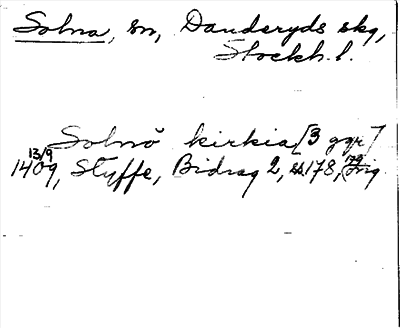 Solna, sn, Danderyds skg,
Stockh. l.
Solnö kirkia [3 ggr]
13/9
1409, Styffe, Bidrag 2, s. 178, 179